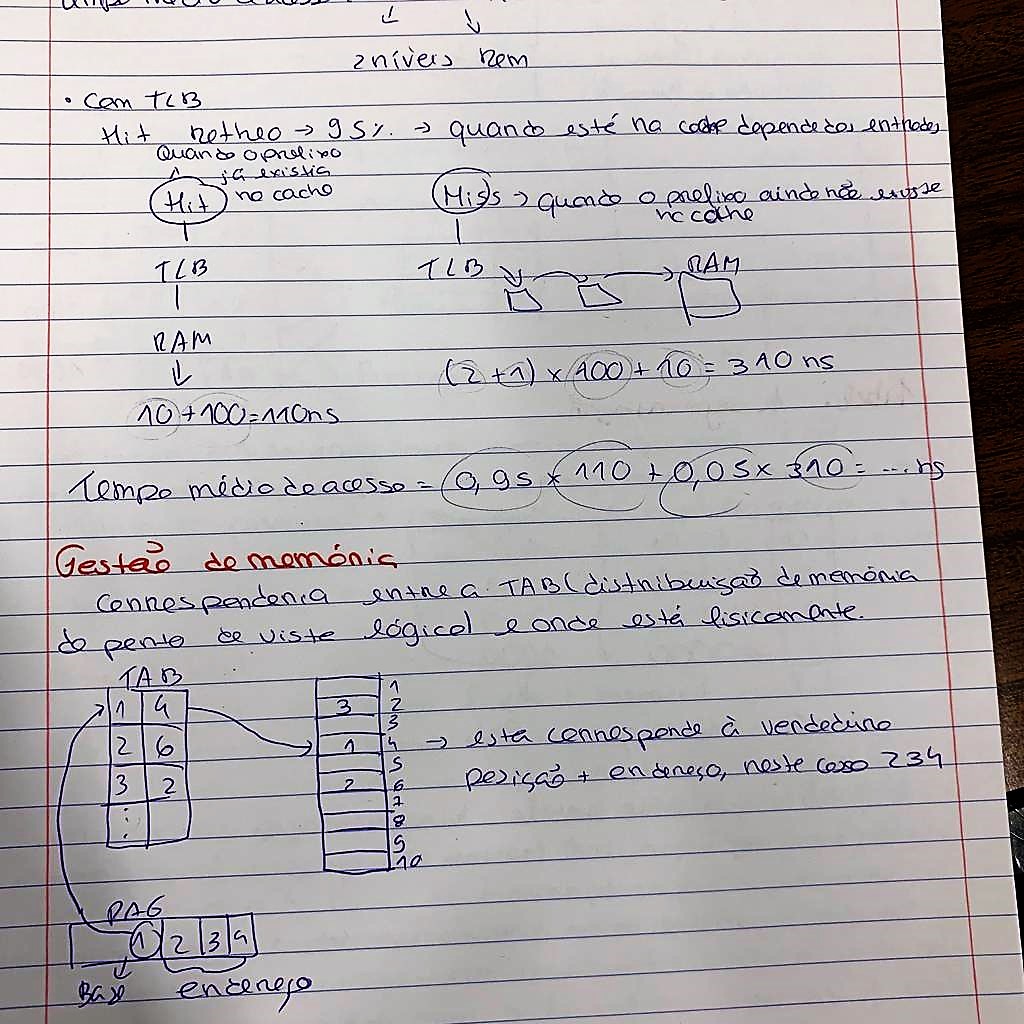 2 níveis Ram
• Com TLB
Hit Ratheo → 95% → quando esté na cache depende das entradas
Quando o prefixo
já existia
no cache
Hit
Miss → quando o prefixo ainda não existe
na cache
TLB
TLB
RAM
RAM
(2+1) × 100 + 10 = 310 ns
10 + 100 = 110 ns
Tempo médio de acesso = 0,95 × 110 + 0,05 × 310 = ... ns
Gestão de memória
Correspondencia entre a TAB (distribuição de memória
do ponto de vista lógico) e onde está fisicamente.
TAB
1 4
2 6
3 2
⋮
1
3 2
3
1 4 → esta corresponde à verdadeira
5 posição + endereço, neste caso 234
2 6
7
8
9
10
PAG
1 2 3 4
Base endereço